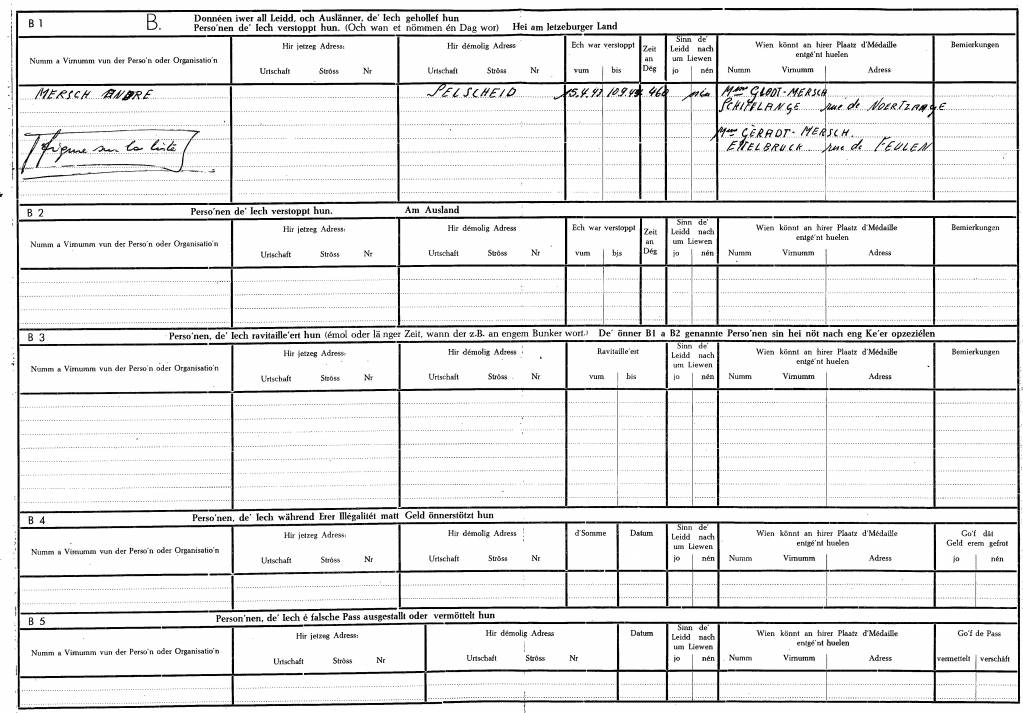 B 1 B. Donnéen iwer all Leidd, och Auslänner, de' Iech gehollef hun
Perso'nen de' Iech verstoppt hun. (Och wan et nömmen én Dag wor) Hei am letzeburger Land
Numm a Virnumm vun der Perso'n oder Organisatio'n
Hir jetzeg Adress:
Urtschaft Ströss Nr
Hir démolig Adress
Urtschaft Ströss Nr
Ech war verstoppt
vum bis
Zeit
an
Dég
Sinn de'
Leidd nach
um Liewen
jo nén
Wien könnt an hirer Plaatz d'Médaille
entgé'nt huelen
Numm Virnumm Adress
Bemierkungen
MERSCH ANDRE SELSCHEID 15.4.43 10.9.44 460 nén Mme GLODT-MERSCH
SCHIFFLANGE rue de NOERTZANGE
Mme GERADT-MERSCH.
figure sur la liste ETTELBRUCK rue de FEULEN
B 2 Perso'nen de' Iech verstoppt hun. Am Ausland
Numm a Virnumm vun der Perso'n oder Organisatio'n
Hir jetzeg Adress:
Urtschaft Ströss Nr
Hir démolig Adress
Urtschaft Ströss Nr
Ech war verstoppt
vum bis
Zeit
an
Dég
Sinn de'
Leidd nach
um Liewen
jo nén
Wien könnt an hirer Plaatz d'Médaille
entgé'nt huelen
Numm Virnumm Adress
Bemierkungen
B 3 Perso'nen, de' Iech ravitaille'ert hun (émol oder länger Zeit, wann der z.B. an engem Bunker wort.) De' önner B1 a B2 genannte Perso'nen sin hei nöt nach eng Ke'er opzeziélen
Numm a Virnumm vun der Perso'n oder Organisatio'n
Hir jetzeg Adress:
Urtschaft Ströss Nr
Hir démolig Adress
Urtschaft Ströss Nr
Ravitaille'ert
vum bis
Sinn de'
Leidd nach
um Liewen
jo nén
Wien könnt an hirer Plaatz d'Médaille
entgé'nt huelen
Numm Virnumm Adress
Bemierkungen
B 4 Perso'nen, de' Iech während Erer Illégalitét matt Geld önnerstötzt hun
Numm a Virnumm vun der Perso'n oder Organisatio'n
Hir jetzeg Adress:
Urtschaft Ströss Nr
Hir démolig Adress
Urtschaft Ströss Nr
d'Somme
Datum
Sinn de'
Leidd nach
um Liewen
jo nén
Wien könnt an hirer Plaatz d'Médaille
entgé'nt huelen
Numm Virnumm Adress
Go'f dât
Geld erem gefrot
jo nén
B 5 Person'nen, de' Iech é falsche Pass ausgestallt oder vermöttelt hun
Numm a Virnumm vun der Perso'n oder Organisatio'n
Hir jetzeg Adress:
Urtschaft Ströss Nr
Hir démolig Adress
Urtschaft Ströss Nr
Datum
Sinn de'
Leidd nach
um Liewen
jo nén
Wien könnt an hirer Plaatz d'Médaille
entgé'nt huelen
Numm Virnumm Adress
Go'f de Pass
vermettelt verschâft